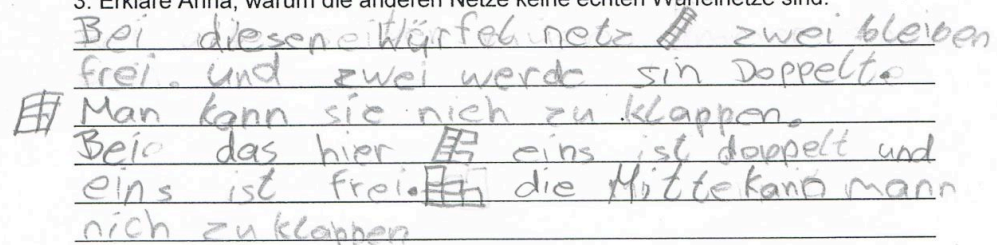 3. Erkläre Anna, warum die anderen Netze keine echten Würfelnetze sind.
Bei diesen Würfel netz zwei bleiben
frei. und zwei werde sin Doppelt.
Man kann sie nich zu klappen.
Bei das hier eins ist doppelt und
eins ist frei. die Mitte kann mann
nich zu klappen